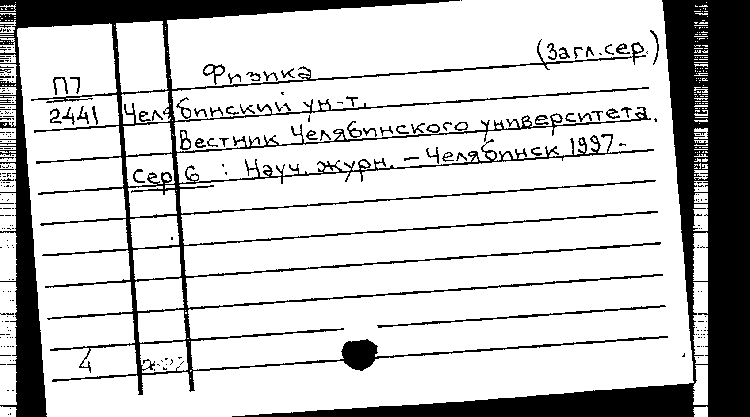 Физика (Загл. сер.)
П7
2441 Челябинский ун-т.
Вестник Челябинского университета.
Сер 6 : Науч. журн. – Челябинск, 1997-
4